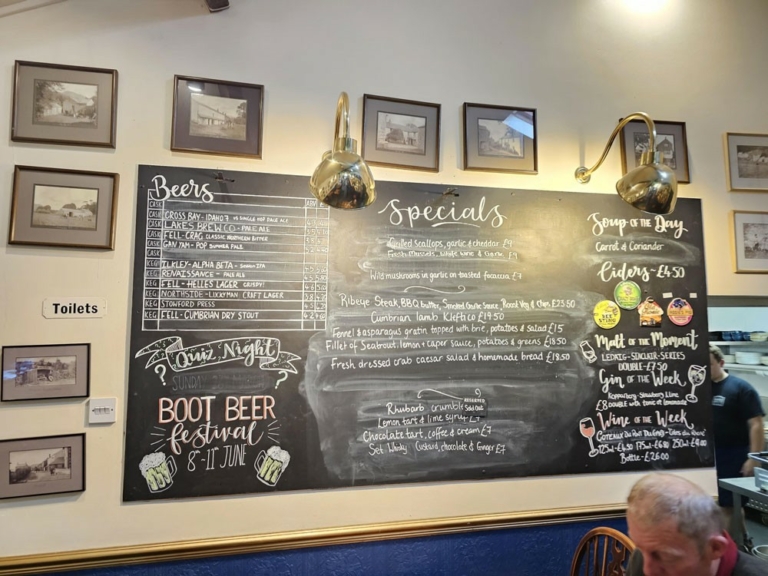 Toilets
Beers
CASK
CROSS BAY - IDAHO7
LAKES BREW CO - PALE ALE
FELL - CRAG CLASSIC NORTHERN BITTER
GAN YAM - POP SUMMER PALE
ILKLEY - ALPHA BETA -
RENAISSANCE - PALE ALE
KEG FELL - HELLES LAGER CRISPY!
KEG NORTHSIDE - LUCKYMAN CRAFT LAGER
KEG STOWFORD PRESS
KEG FELL - CUMBRIAN DRY STOUT
Quiz Night
BOOT BEER
festival
8TH - 11TH JUNE
Specials
Grilled scallops, garlic & cheddar £9
Fresh mussels, white wine &
Wild mushrooms in garlic on toasted focaccia £7
Ribeye Steak, BBQ butter, Smoked Onion Sauce, Roast Veg & Chips £23.50
Cumbrian lamb Kleftico £19.50
Fennel & asparagus gratin topped with brie, potatoes & salad £15
Fillet of Seabrout, lemon & caper sauce, potatoes & greens £18.50
Fresh dressed crab caesar salad & homemade bread £18.50
Rhubarb crumble
Lemon tart & lime syrup £7
Chocolate tart, coffee & cream £7
Set Whisky Custard, chocolate & Ginger £7
Soup OF THE Day
Carrot & Coriander
Ciders - £4.50
Malt OF THE Moment
DOUBLE - £7.50
Gin OF THE Week
£8 DOUBLE with tonic or lemonade
Wine OF THE Week
125ml - £4.50 175ml - £6.00 250ml -
Bottle - £26.00